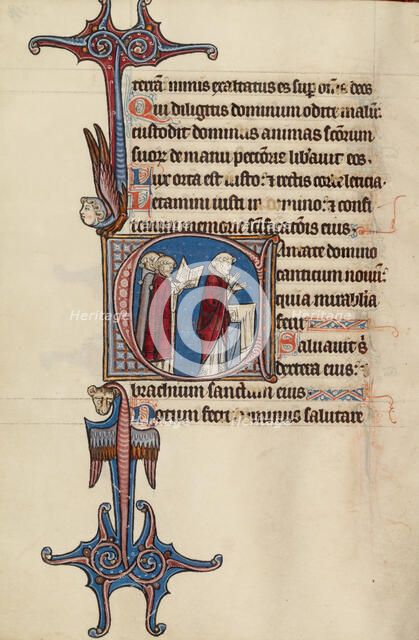 terrā nimis exaltatus es sup̄ om̄s deos
Qui diligitis dominum odite malū:
custodit dominus animas sc̄orum
suor̄ de manu peccoris lib̄auit eos
Lux orta est iusto: et rectis corde leticia
Letamini iusti in domino: et confi
temini memorie sc̄ificationis eius
Cantate domino
canticum nouū:
quia mirabilia
fecit
Saluauit s̄
dextera eius:
brachium sanctum eius
Notum fecit dominus salutare
Heritage Images
Heritage
Heritage